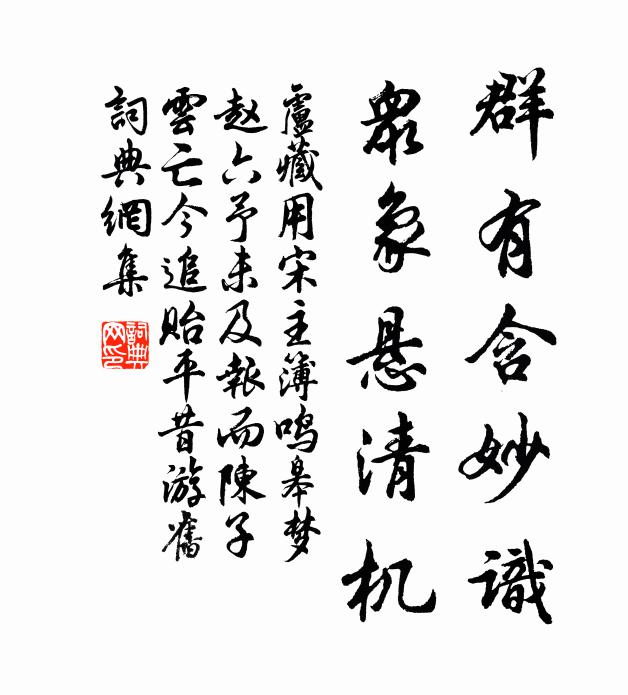 群有含妙識
衆象悬清机
盧藏用宋主簿鸣皋梦
赵六予未及報而陳子
雲亡今追貽平昔游舊
詞典網集
詞典
网印